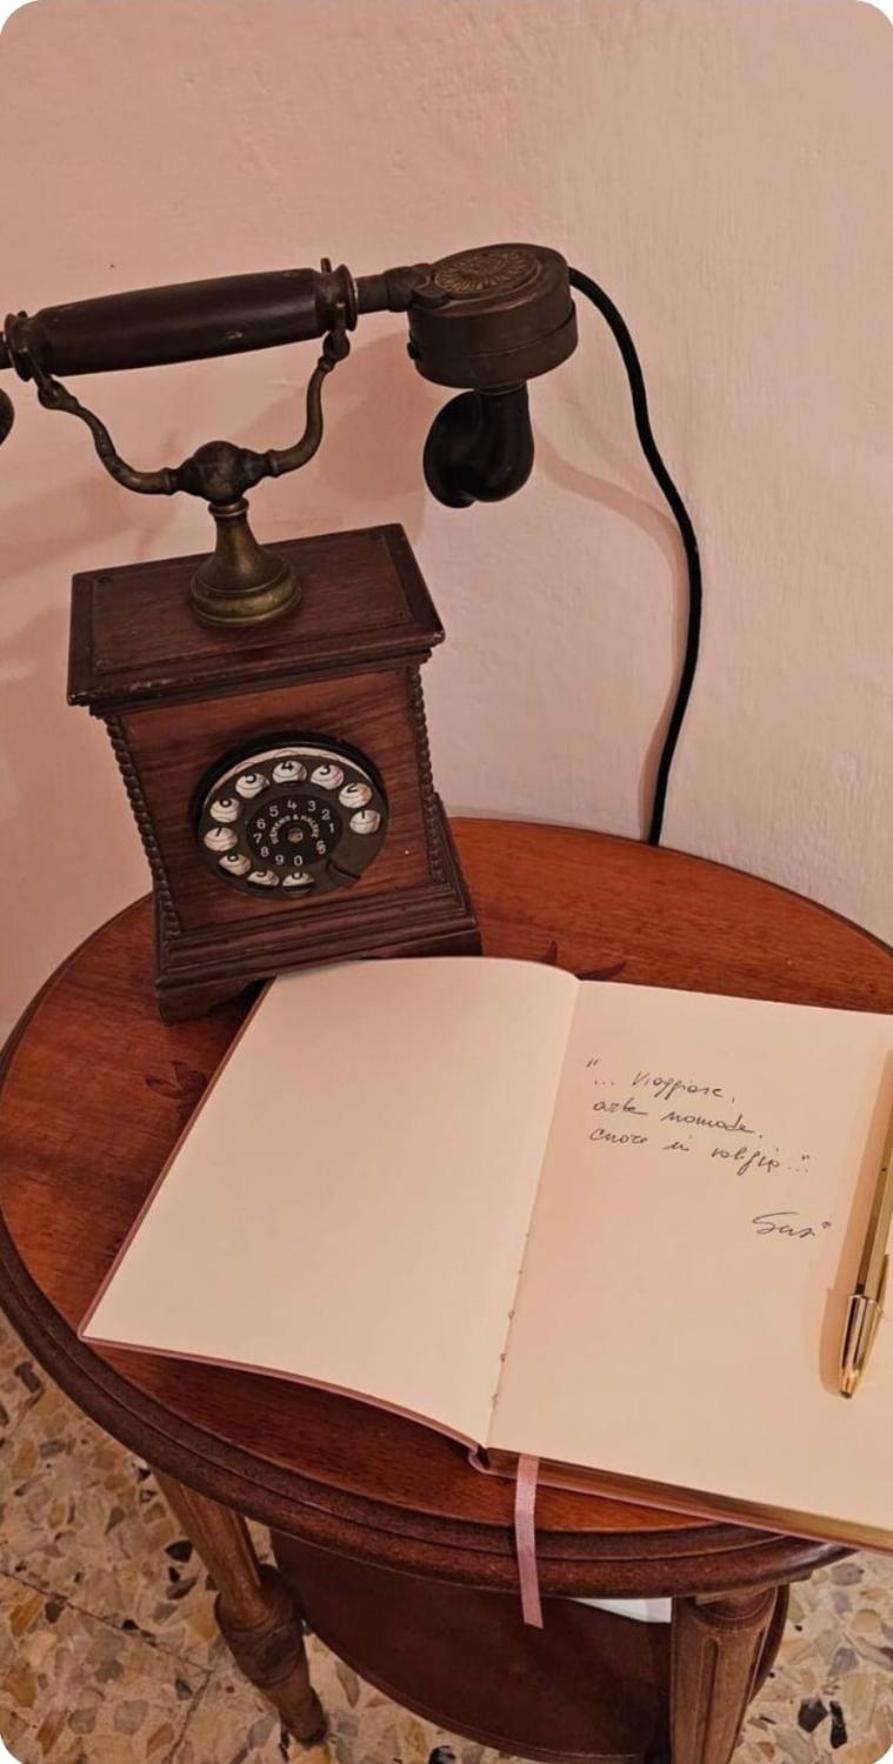 "... Viaggiare,
arte nomade,
cuore in valigia..."
Susi
5 4 3 2 1
6 7 8 9 0
SIEMENS & HALSKE